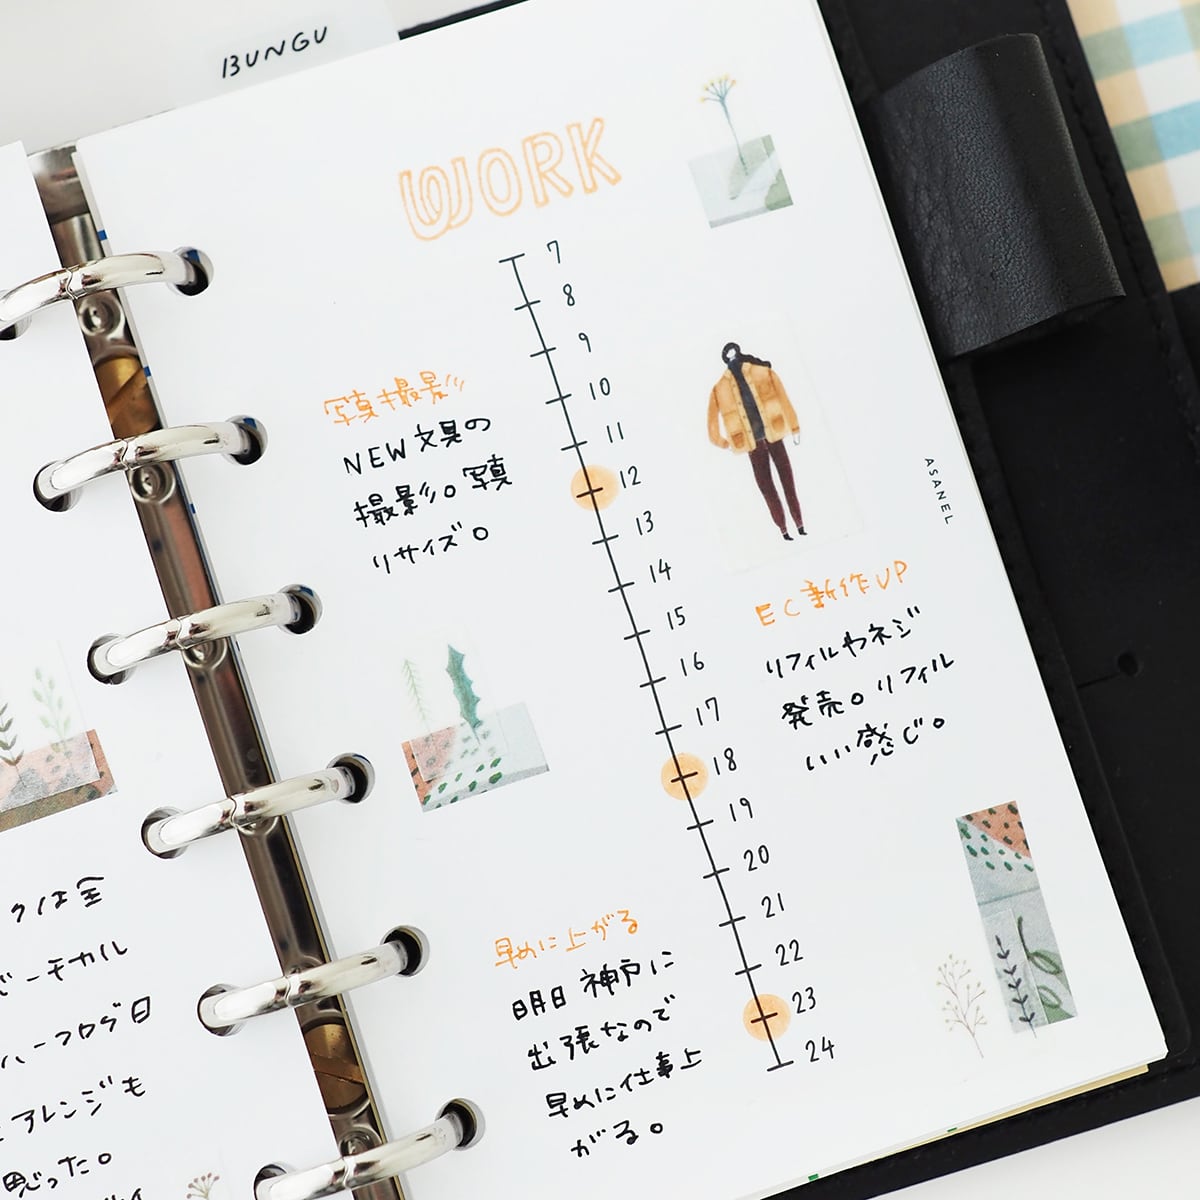 BUNGU
WORK
7
8
9
10
11
12
13
14
15
16
17
18
19
20
21
22
23
24
写真撮影
NEW文具の
撮影。写真
リサイズ。
ASANEL
EC新作UP
リフィルやネジ
発売。リフィル
いい感じ。
早めに上がる
明日神戸に
出張なので
早めに仕事上
がる。
クは全
バーチカル
ハーフログ日
アレンジも
思った。